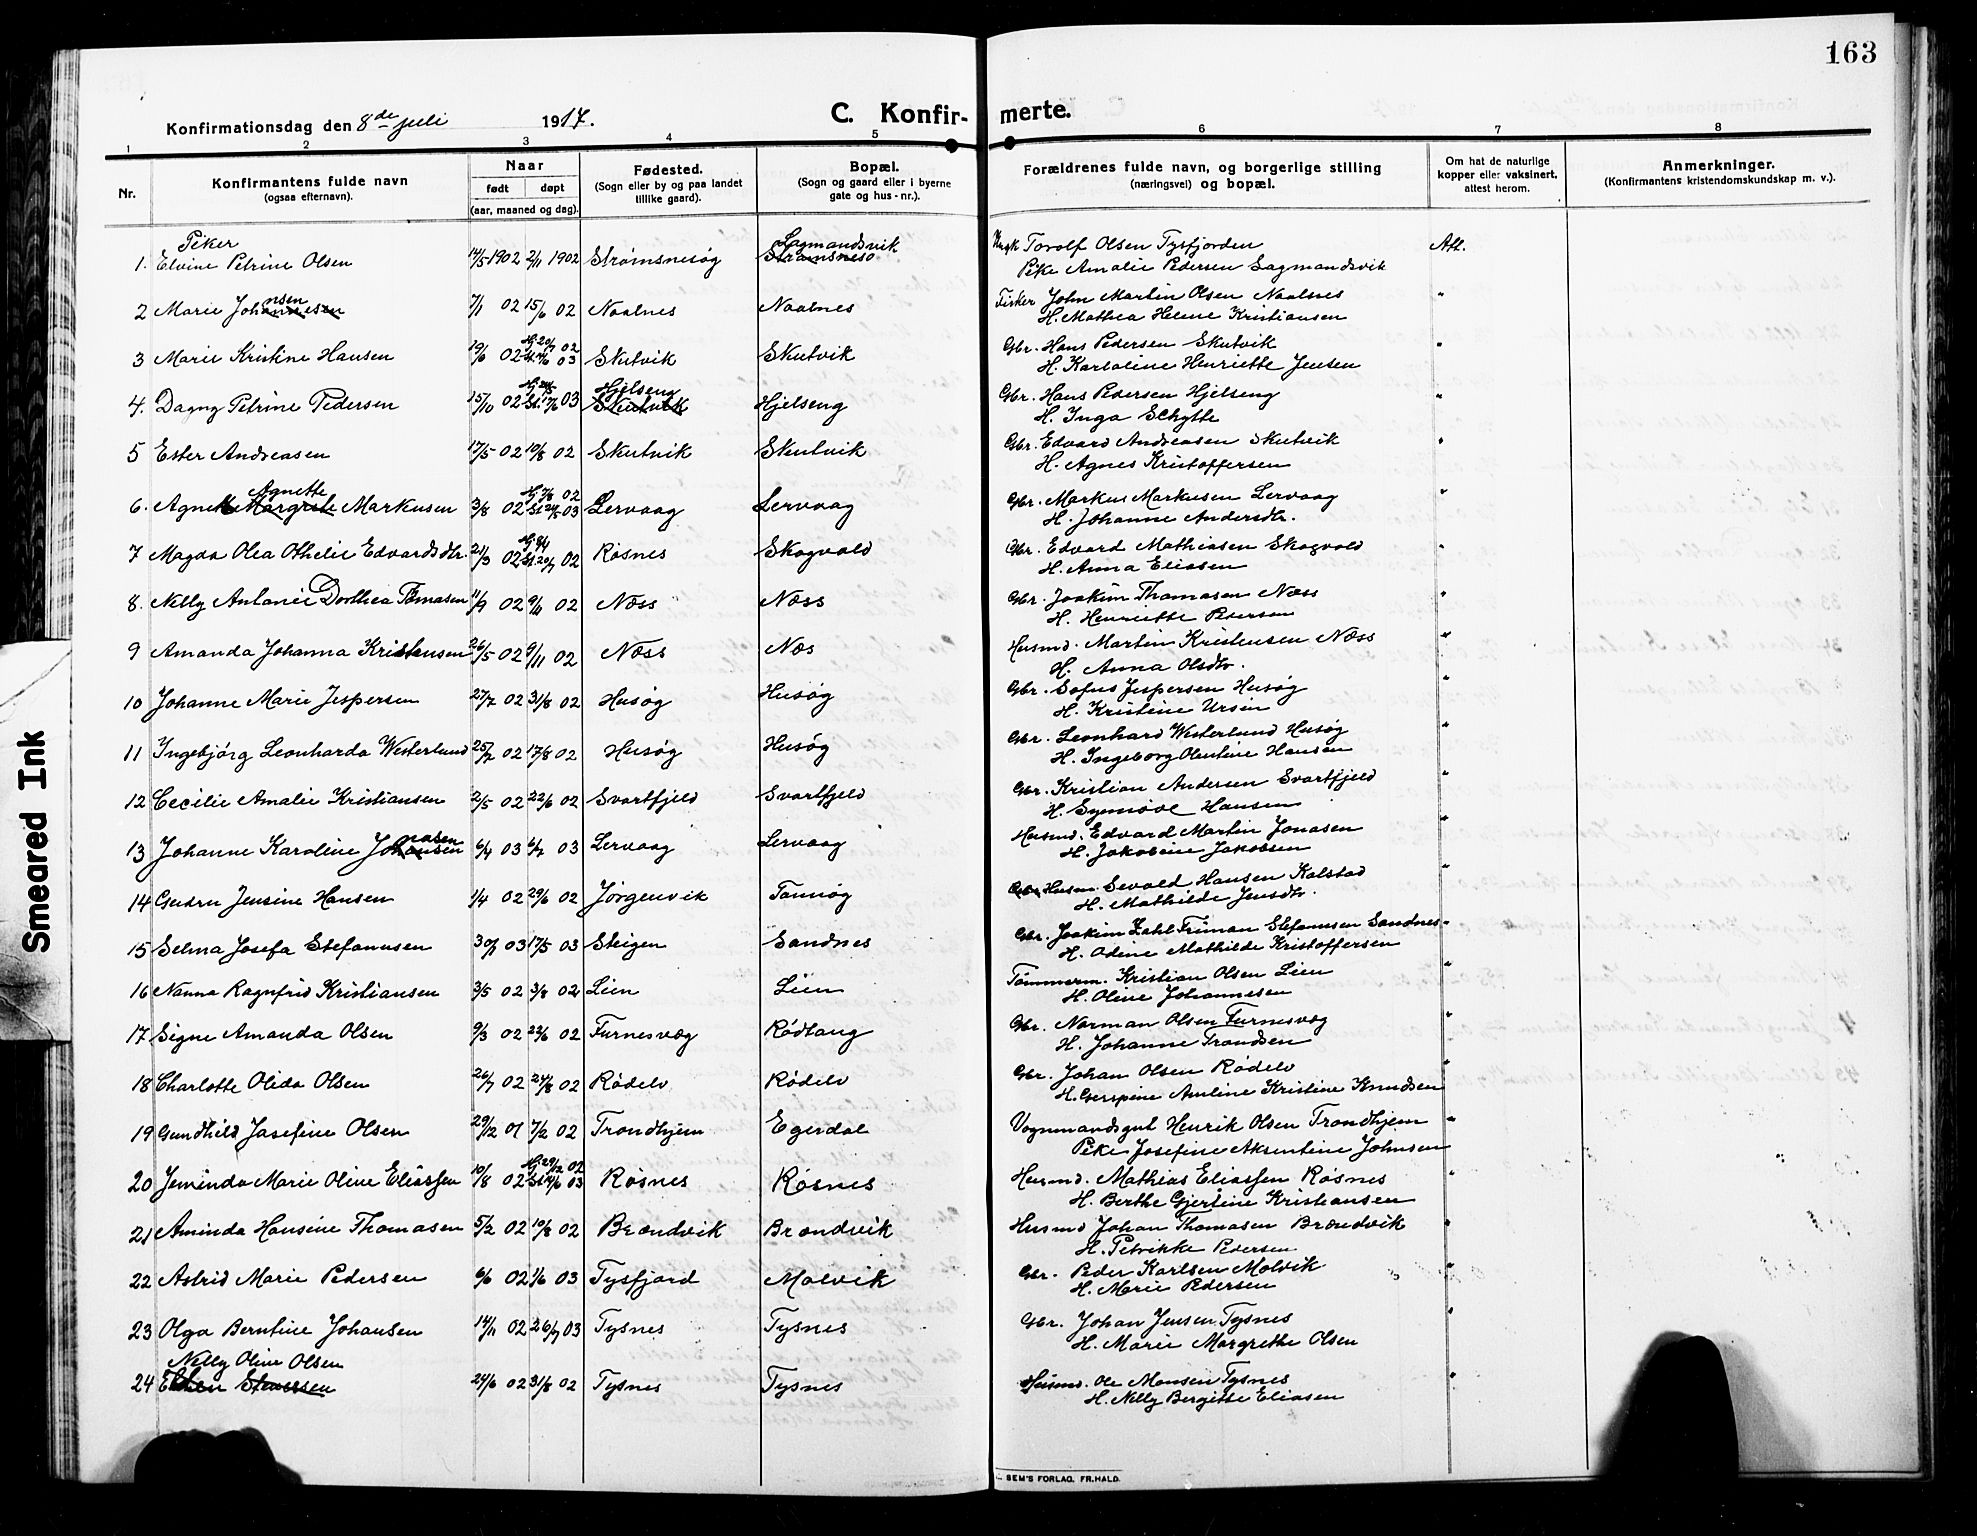 163
Konfirmationsdag den 8de juli 1917.
C. Konfir- merte.
1 2 3 4 5 6 7 8
Nr.
Konfirmantens fulde navn
(ogsaa efternavn).
Naar
født døpt
(aar, maaned og dag).
Fødested.
(Sogn eller by og paa landet
tillike gaard).
Bopæl.
(Sogn og gaard eller i byerne
gate og hus-nr.).
Forældrenes fulde navn, og borgerlige stilling
(næringsvei) og bopæl.
Om hat de naturlige
kopper eller vaksinert,
attest herom.
Anmerkninger.
(Konfirmantens kristendomskundskap m. v.).
Piker
1. Elvine Petrine Olsen 14/5 1902 2/11 1902 Strømsnesøg Lagmandsvik Strømsnesø Ungk Torolf Olsen Tysfjorden Att.
Pike Amalie Pedersen Lagmandsvik
2 Marie Johannesen nsen 7/1 02 15/6 02 Naalnes Naalnes Fisker John Martin Olsen Naalnes "
H. Mathea Helene Kristiansen
3 Marie Kristine Hansen 19/6 02 Hj 20/7 02 St. 14/6 03 Skutvik Skutvik Gbr. Hans Pedersen Skutvik "
H. Karoline Henriette Jensen
4. Dagny Petrine Pedersen 15/10 02 03 Hjelseng Skutvik Hjelseng Gbr. Hans Pedersen Hjelseng "
H. Inga Schytte
5 Ester Andreasen 17/5 02 10/8 02 Skutvik Skutvik Gbr. Edvard Andreasen Skutvik "
H. Agnes Kristoffersen
6. Agnete Margrete Agnette Markusen 3/8 02 Hj 7/8 02 St 24/5 03 Lervaag Lervaag Gbr. Markus Markusen Lervaag "
H. Johanne Andersdtr.
7 Magda Olea Othelie Edvardsdtr. 21/3 02 St. 20/7 02 Røsnes Skogvold Gbr. Edvard Mathiasen Skogvold "
H. Anna Eliasen
8. Nelly Antonie Dorthea Tomasen 11/9 02 9/11 02 Næss Næss Gbr. Joakim Thomasen Næss "
H. Henriette Pedersen
9 Amanda Johanna Kristensen 26/5 02 9/11 02 Næss Næs Husmd. Martin Kristensen Næss "
H. Anna Olsdtr.
10 Johanne Marie Jespersen 27/7 02 31/8 02 Husøg Husøg Gbr. Sofus Jespersen Husøg "
H. Kristine Ursin
11 Ingebjørg Leonharda Westerlund 25/7 02 17/8 02 Husøg Husøg Gbr. Leonhard Westerlund Husøg "
H. Ingeborg Oluntine Hansen
12 Cecilie Amalie Kristiansen 2/5 02 22/6 02 Svartfjeld Svartfjeld Gbr. Kristian Andersen Svartfjeld "
H. Synnøve Hansen
13 Johanne Karoline Johansen nasen 6/4 03 6/7 03 Lervaag Lervaag Husmd. Edvard Martin Jonasen "
H. Jakobine Jakobsen
14 Gudrun Jensine Hansen 1/4 02 29/6 02 Jørgenvik Tannøg Gbr Husm. Sevald Hansen Kalstad "
H. Mathilde Jensdtr.
15 Selma Josefa Stefanusen 30/1 03 17/5 03 Steigen Sandnes Gbr. Joakim Zahl Friman Stefanusen Sandnes "
H. Odine Mathilde Kristoffersen
16 Nanna Ragnfrid Kristiansen 3/5 02 3/8 02 Lien Lien Tømmerm. Kristian Olsen Lien "
H. Oline Johannesen
17 Signe Amanda Olsen 9/3 02 22/6 02 Furnesvæg Rødtang Gbr. Norman Olsen Furnesvæg "
H. Johanne Trondsen
18 Charlotte Olida Olsen 26/7 02 24/8 02 Rødelv Rødelv Gbr. Johan Olsen Rødelv "
H. Gerspine Amline Kristine Knudsen
19 Gundhild Josefine Olsen 29/12 01 7/2 02 Trondhjem Egerdal Vognmandsgut Henrik Olsen Trondhjem "
Pike Josefine Aksentine Johnsen
20 Jeminda Marie Oline Eliassen 10/8 02 Hj 29/12 02 St 14/6 03 Røsnes Røsnes Husmd. Mathias Eliassen Røsnes "
H. Berthe Gjertine Kristiansen
21 Aminda Hansine Thomasen 5/2 02 10/8 02 Brændvik Brændvik Husmd Johan Thomasen Brændvik "
H. Petrikke Pedersen
22 Astrid Marie Pedersen 6/6 02 1/6 03 Tysfjord Molvik Gbr. Peder Karlsen Molvik "
H. Marie Pedersen
23 Olga Berntine Johansen 14/11 02 26/7 03 Tysnes Tysnes Gbr. Johan Jensen Tysnes "
H. Marie Margrethe Olsen
Nelly Oline Olsen
24 24/6 02 31/8 02 Tysnes Tysnes Husmd. Ole Monsen Tysnes "
H. Nelly Bergitte Eliasen
SEM'S FORLAG, FR.HALD.
Smeared Ink